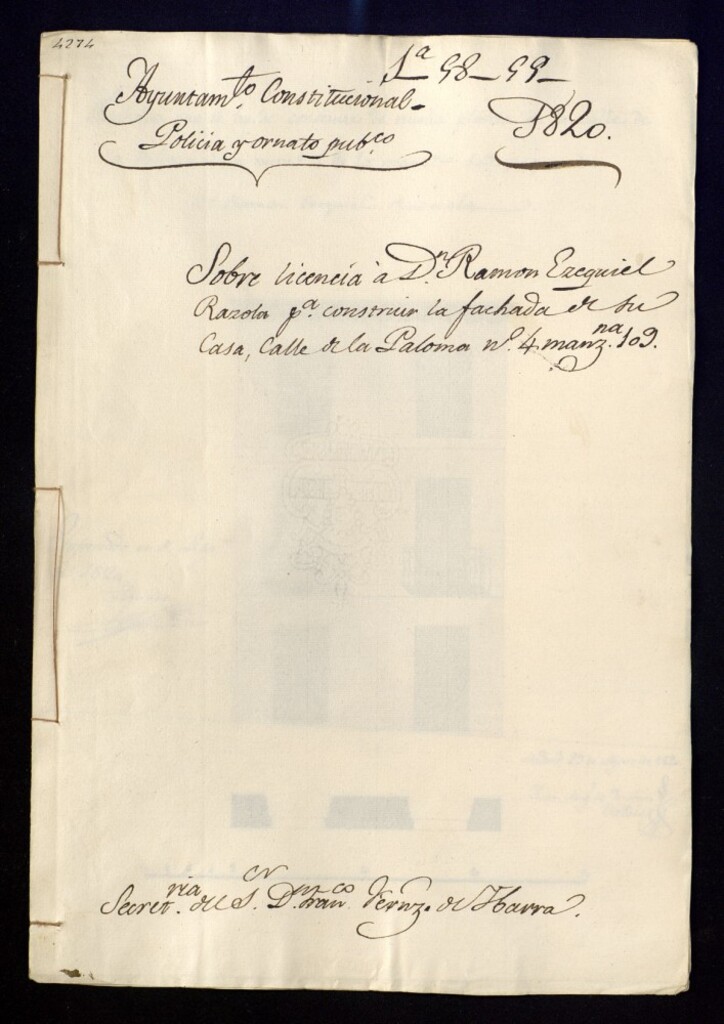 4274
1ª 58-59-
Ayuntamto. Constitucional-
1820.
Policia y ornato pubco
Sobre licencia à Dn. Ramon Ezequiel
Razola pa. construir la fachada de su
Casa, Calle de la Paloma no. 4. manzna. 109.
Secretria. del Sor. Dn. Franco. Fernz. de Ibarra.